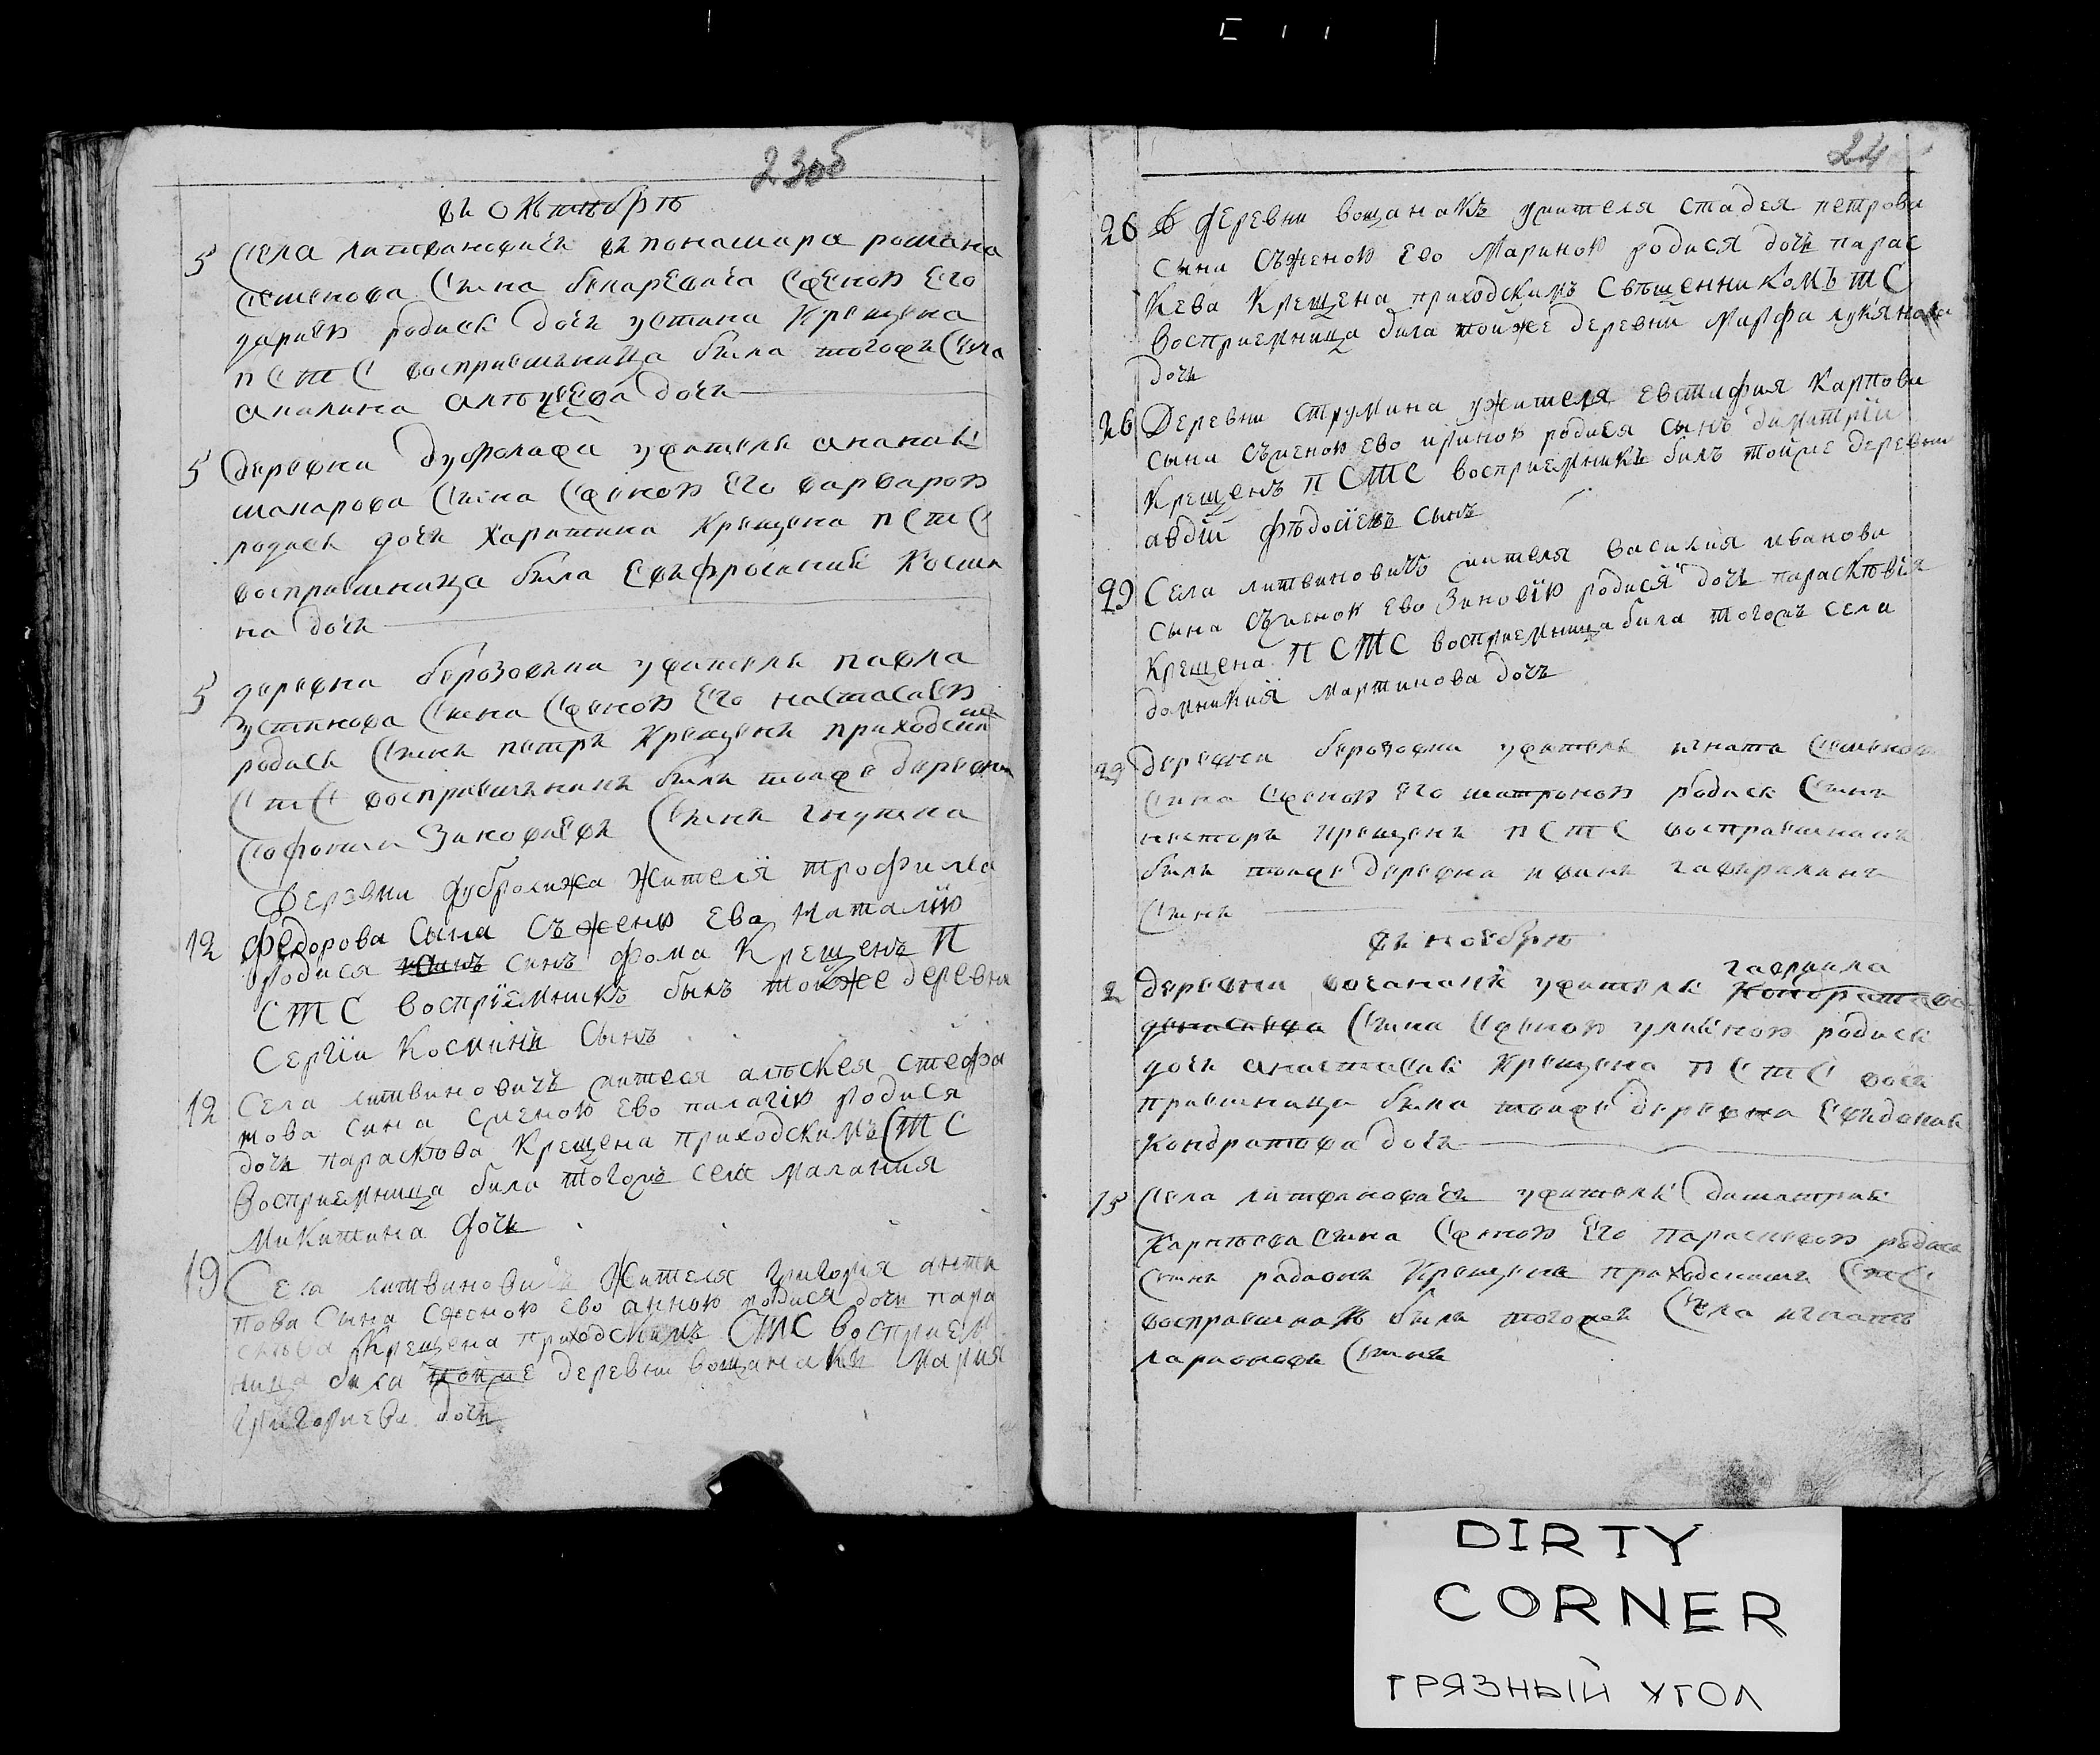 23об
въ октябрѣ
5 Села литвиновичъ въ понамара романа
семенова Сына бонаревича Сженою Его
дариею родися дочь устина Крещена
п С т С восприемница была тогожъ Села
акилина дочь
5 деревни дубролива ужителя анания
макарова Сына Сженою Его варварою
родися дочь Харитина Крещена п С т С
восприемница была Евфросиния Косми
на дочь
5 деревни берозовки ужителя павла
устинова Сына Сженою Его настасиею
родися Сынъ петръ Крещенъ приходским
С т С восприемникъ былъ тояже деревни
Софонъ Зиновиевъ Сынъ
Деревни дубролижа Жителя трофима
12 федорова Сына Съ Женю Ево Наталию
родися синъ фома Крещенъ П
С т С воспріемникъ былъ тойже деревни
Сергіи Косминъ Сынъ
12 Села литвиновичъ жителя алѣксея Стефа
нова Сина Сженою Ево пилагію родися
дочь парасковя Крещена приходскимъ С т С
Восприемница била тогожъ села Малания
Микитина дочь
19 Села литвиновичъ Жителя григория анти
пова Сына Сженою Ево анною родися дочь пара
скѣва Крещена приходскимъ С т С восприем
ница била тойже деревни вощанакъ Мария
григориева дочь
24
26 В деревни вощанакъ ужителя Стадея петрови
Сыни Съженою Ево Мариною родися дочь парас
кева Крещена приходскимъ Свѣщенникомъ т С
восприемница била тойже деревни Марфа лукянова
дочь
26 Деревни струмина ужителя Евстафия Карпови
сыни Съженою ево ириною родися сынъ димитрїи
Крещенъ П С т С восприемникъ билъ тойже деревни
авдїи фѣдосїевъ сынъ
29 Села литвиновичъ жителя василия иванови
Сына Съженою ево Зиновїю родися дочь парасковїя
Крещена П С т С восприемница била тогожъ села
домникия Мартинова дочь
29 деревни берозовки ужителя игната Семенова
Сина Сженою Его матроною родися Сынъ
нестеръ Крещенъ п С т С восприемникъ
былъ тояже деревни иванъ гаврилинъ
Сынъ
въ ноябрѣ
гаврила
2 деревни вочанакъ ужителя Кондратова
Сына Сженою улияною родися
дочь анастасия Крещена п С т С вос
приемница была тояже деревни Евдокия
Кондратова дочь
15 Села литвиновичъ ужителя димитрия
Карпѣева Сина Сженою Его парасковею родися
Сынъ радионъ Крещенъ приходскимъ С т С
восприемникъ былъ тогожъ Села игнатъ
ларионовъ Сынъ
DIRTY
CORNER
ГРЯЗНЫЙ УГОЛ